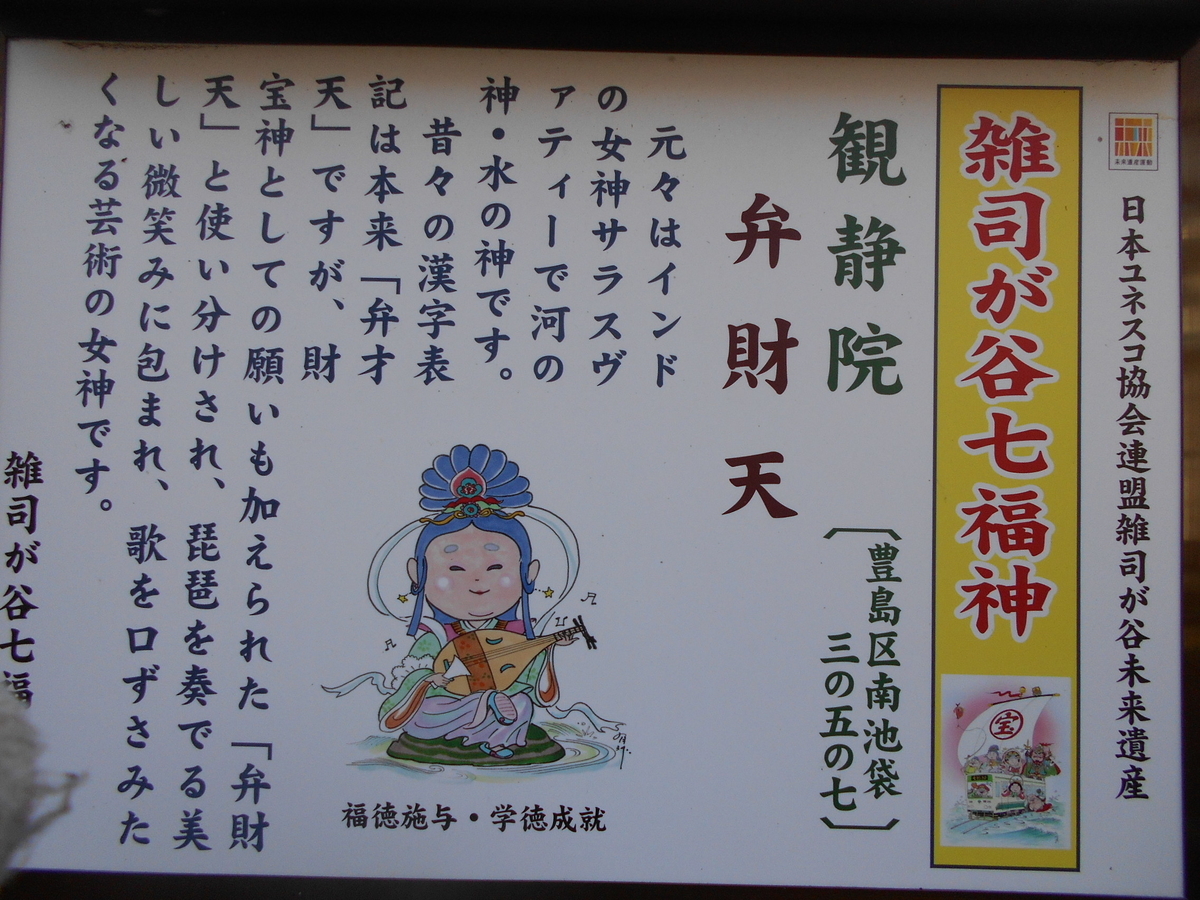 未来遺産運動
日本ユネスコ協会連盟雑司が谷未来遺産
雑司が谷七福神
宝
観静院
〔豊島区南池袋
三の五の七〕
弁財天
元々はインド
の女神サラスヴ
ァティーで河の
神・水の神です。
昔々の漢字表
記は本来「弁才
天」ですが、財
宝神としての願いも加えられた「弁財
天」と使い分けされ、琵琶を奏でる美
しい微笑みに包まれ、歌を口ずさみた
くなる芸術の女神です。
福徳施与・学徳成就
雑司が谷七福